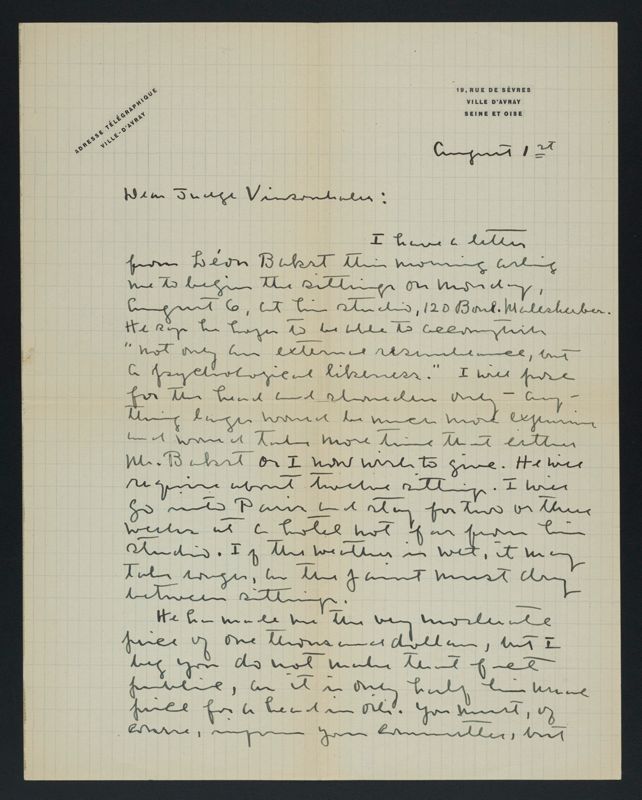 ADRESSE TÉLÉGRAPHIQUE
VILLE-D'AVRAY
19, RUE DE SÈVRES
VILLE D'AVRAY
SEINE ET OISE
August 1st
Dear Judge Vinsonhaler:
I have a letter
from Léon Bakst this morning asking
me to begin the sittings on Monday,
August 6, at his studio, 120 Boul. Malesherbes.
He says he hopes to be able to accomplish
"not only an external resemblance, but
a psychological likeness." I will pose
for the head and shoulders only - any-
thing larger would be much more expensive
and would take more time that either
Mr. Bakst or I now wish to give. He will
require about twelve sittings. I will
go into Paris and stay for two or three
weeks at a hotel not far from his
studio. If the weather is wet, it may
take longer, as the paint must dry
between sittings.
He has made me the very moderate
price of one thousand dollars, but I
beg you do not make that fact
public, as it is only half his usual
price for a head in oils. You must, of
course, inform your committee, but